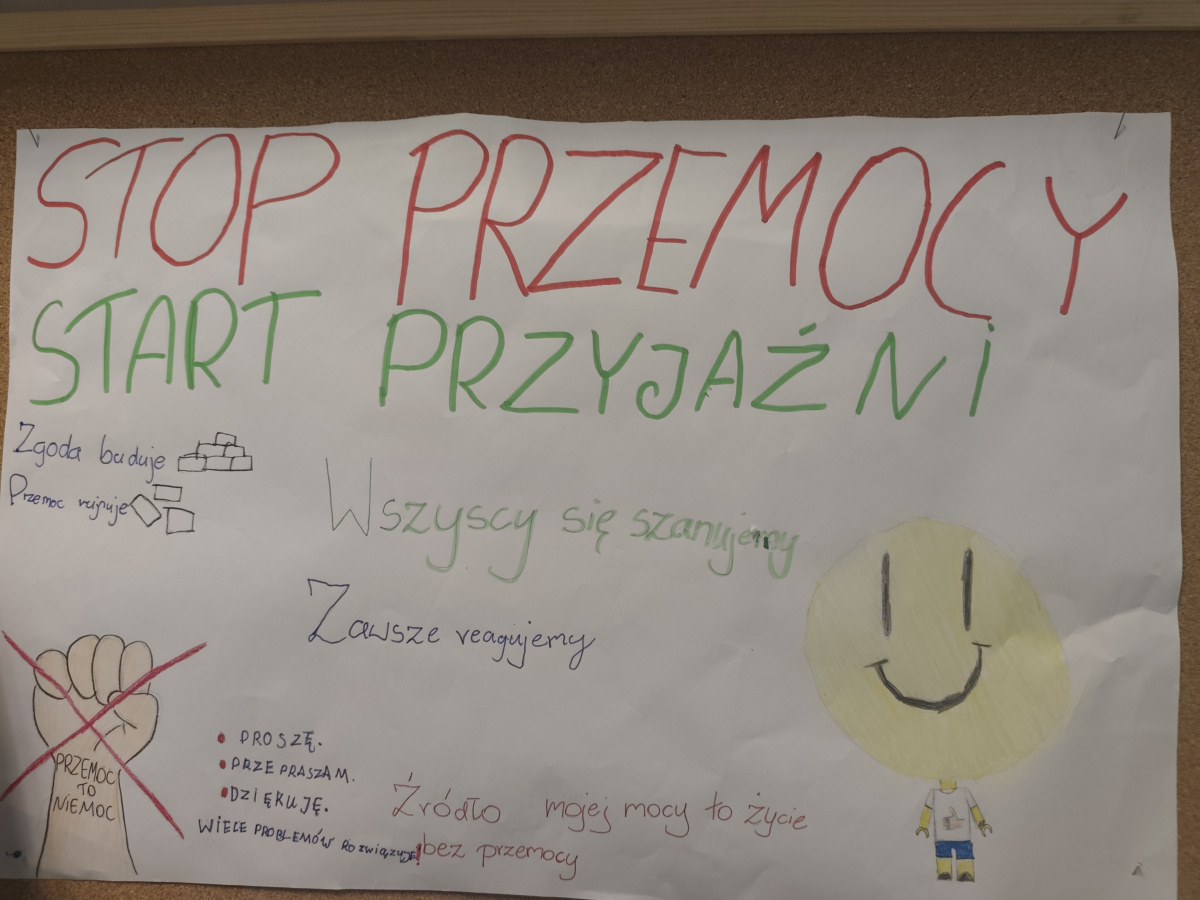 STOP PRZEMOCY
START PRZYJAŹNI
Zgoda buduje
Przemoc rujnuje
Wszyscy się szanujemy
Zawsze reagujemy
PRZEMOC
TO
NIEMOC
• PROSZĘ.
• PRZEPRASZAM.
• DZIĘKUJĘ.
WIELE PROBLEMÓW ROZWIĄZUJĘ!
Źródło mojej mocy to życie
bez przemocy